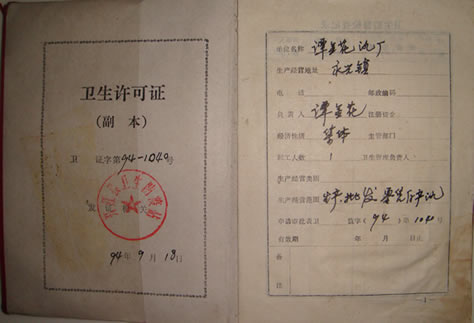 卫生许可证
(副本)
卫 证字第94-1040号
发 关
94年9月18日
单位名称 谭金花 厂
生产经营地址 永兴镇
电话 邮政编码
负责人 谭金花 注册资金
经济性质 主管部门
职工人数 1 卫生管理负责人
生产经营类别
生产经营范围 生产、批发
申请审批表卫 监字(94)第1040号
有效期 年 月 日止
备
注
— 1 —